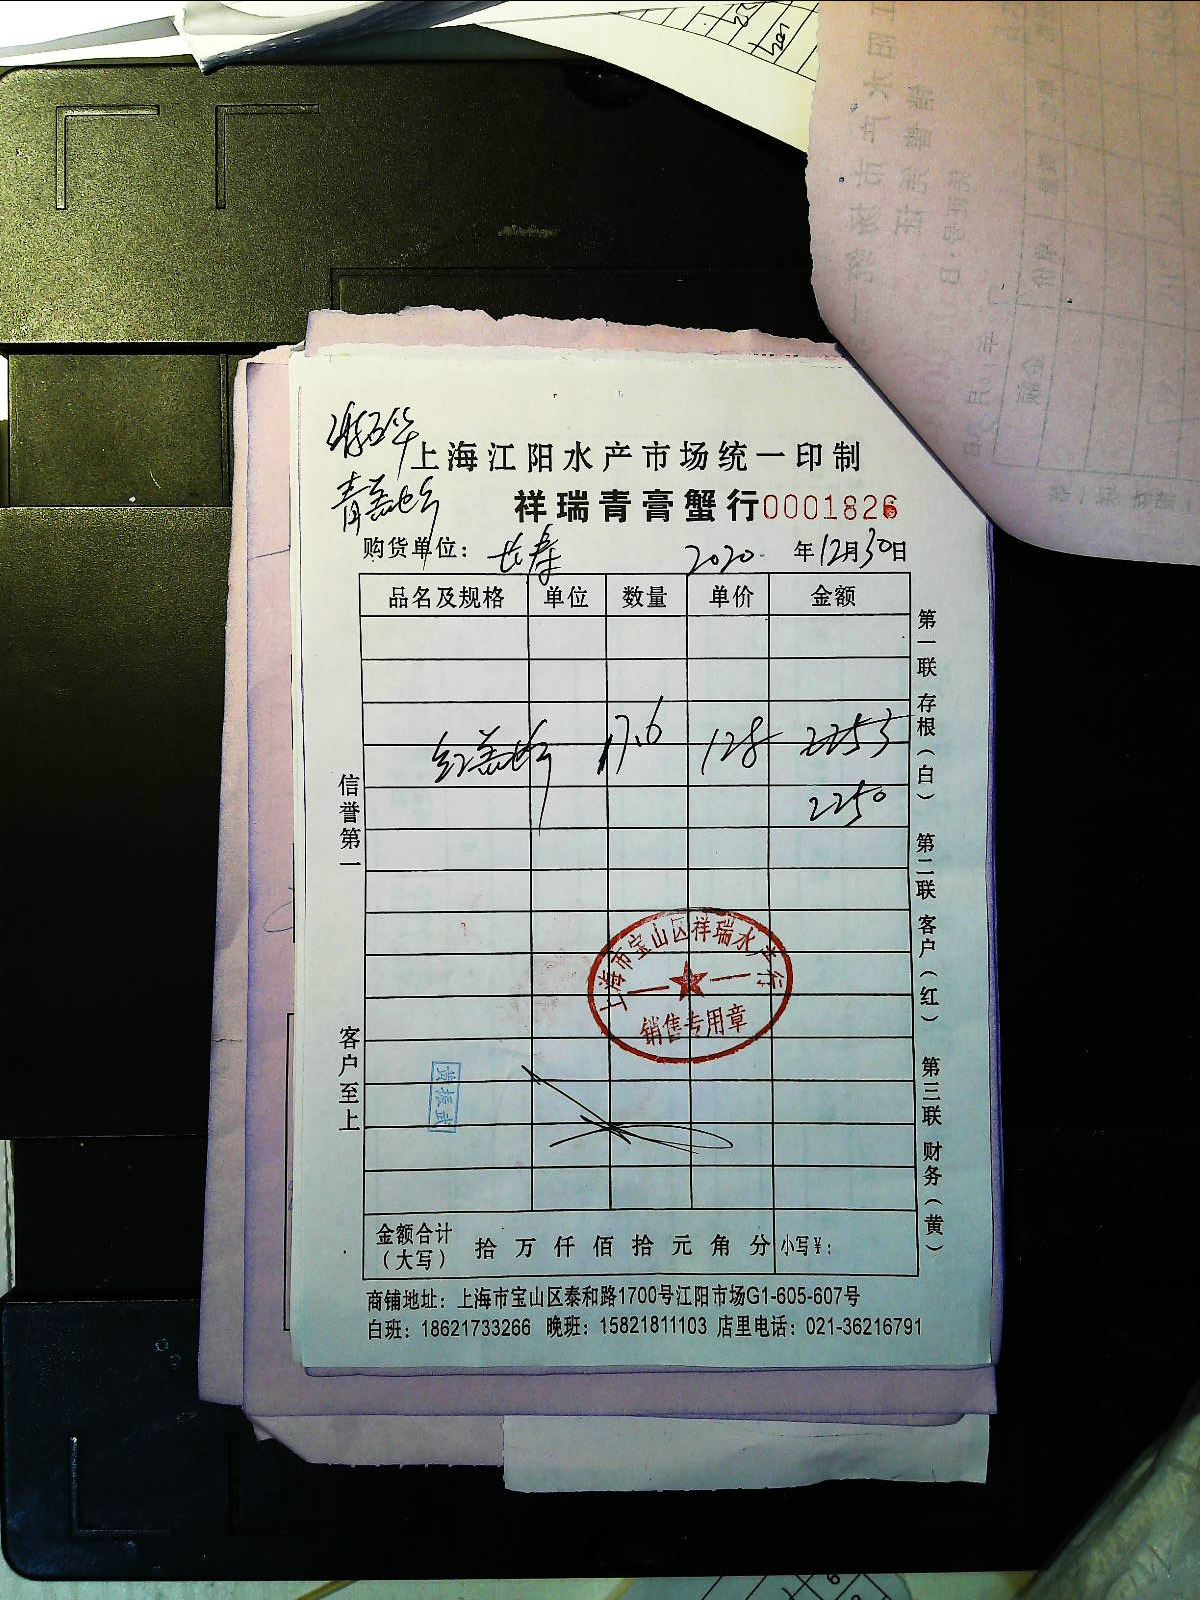 上海江阳水产市场统一印制
祥瑞青膏蟹行0001826
购货单位: 长寿 2020 年12月30日
品名及规格 单位 数量 单价 金额
红膏蟹 17.6 128 2253
2250
信誉第一
客户至上
第一联 存根(白) 第二联 客户(红) 第三联 财务(黄)
上海市宝山区祥瑞水产行
销售专用章
金额合计
(大写) 拾 万 仟 佰 拾 元 角 分 小写¥:
商铺地址: 上海市宝山区泰和路1700号江阳市场G1-605-607号
白班: 18621733266 晚班: 15821811103 店里电话: 021-36216791